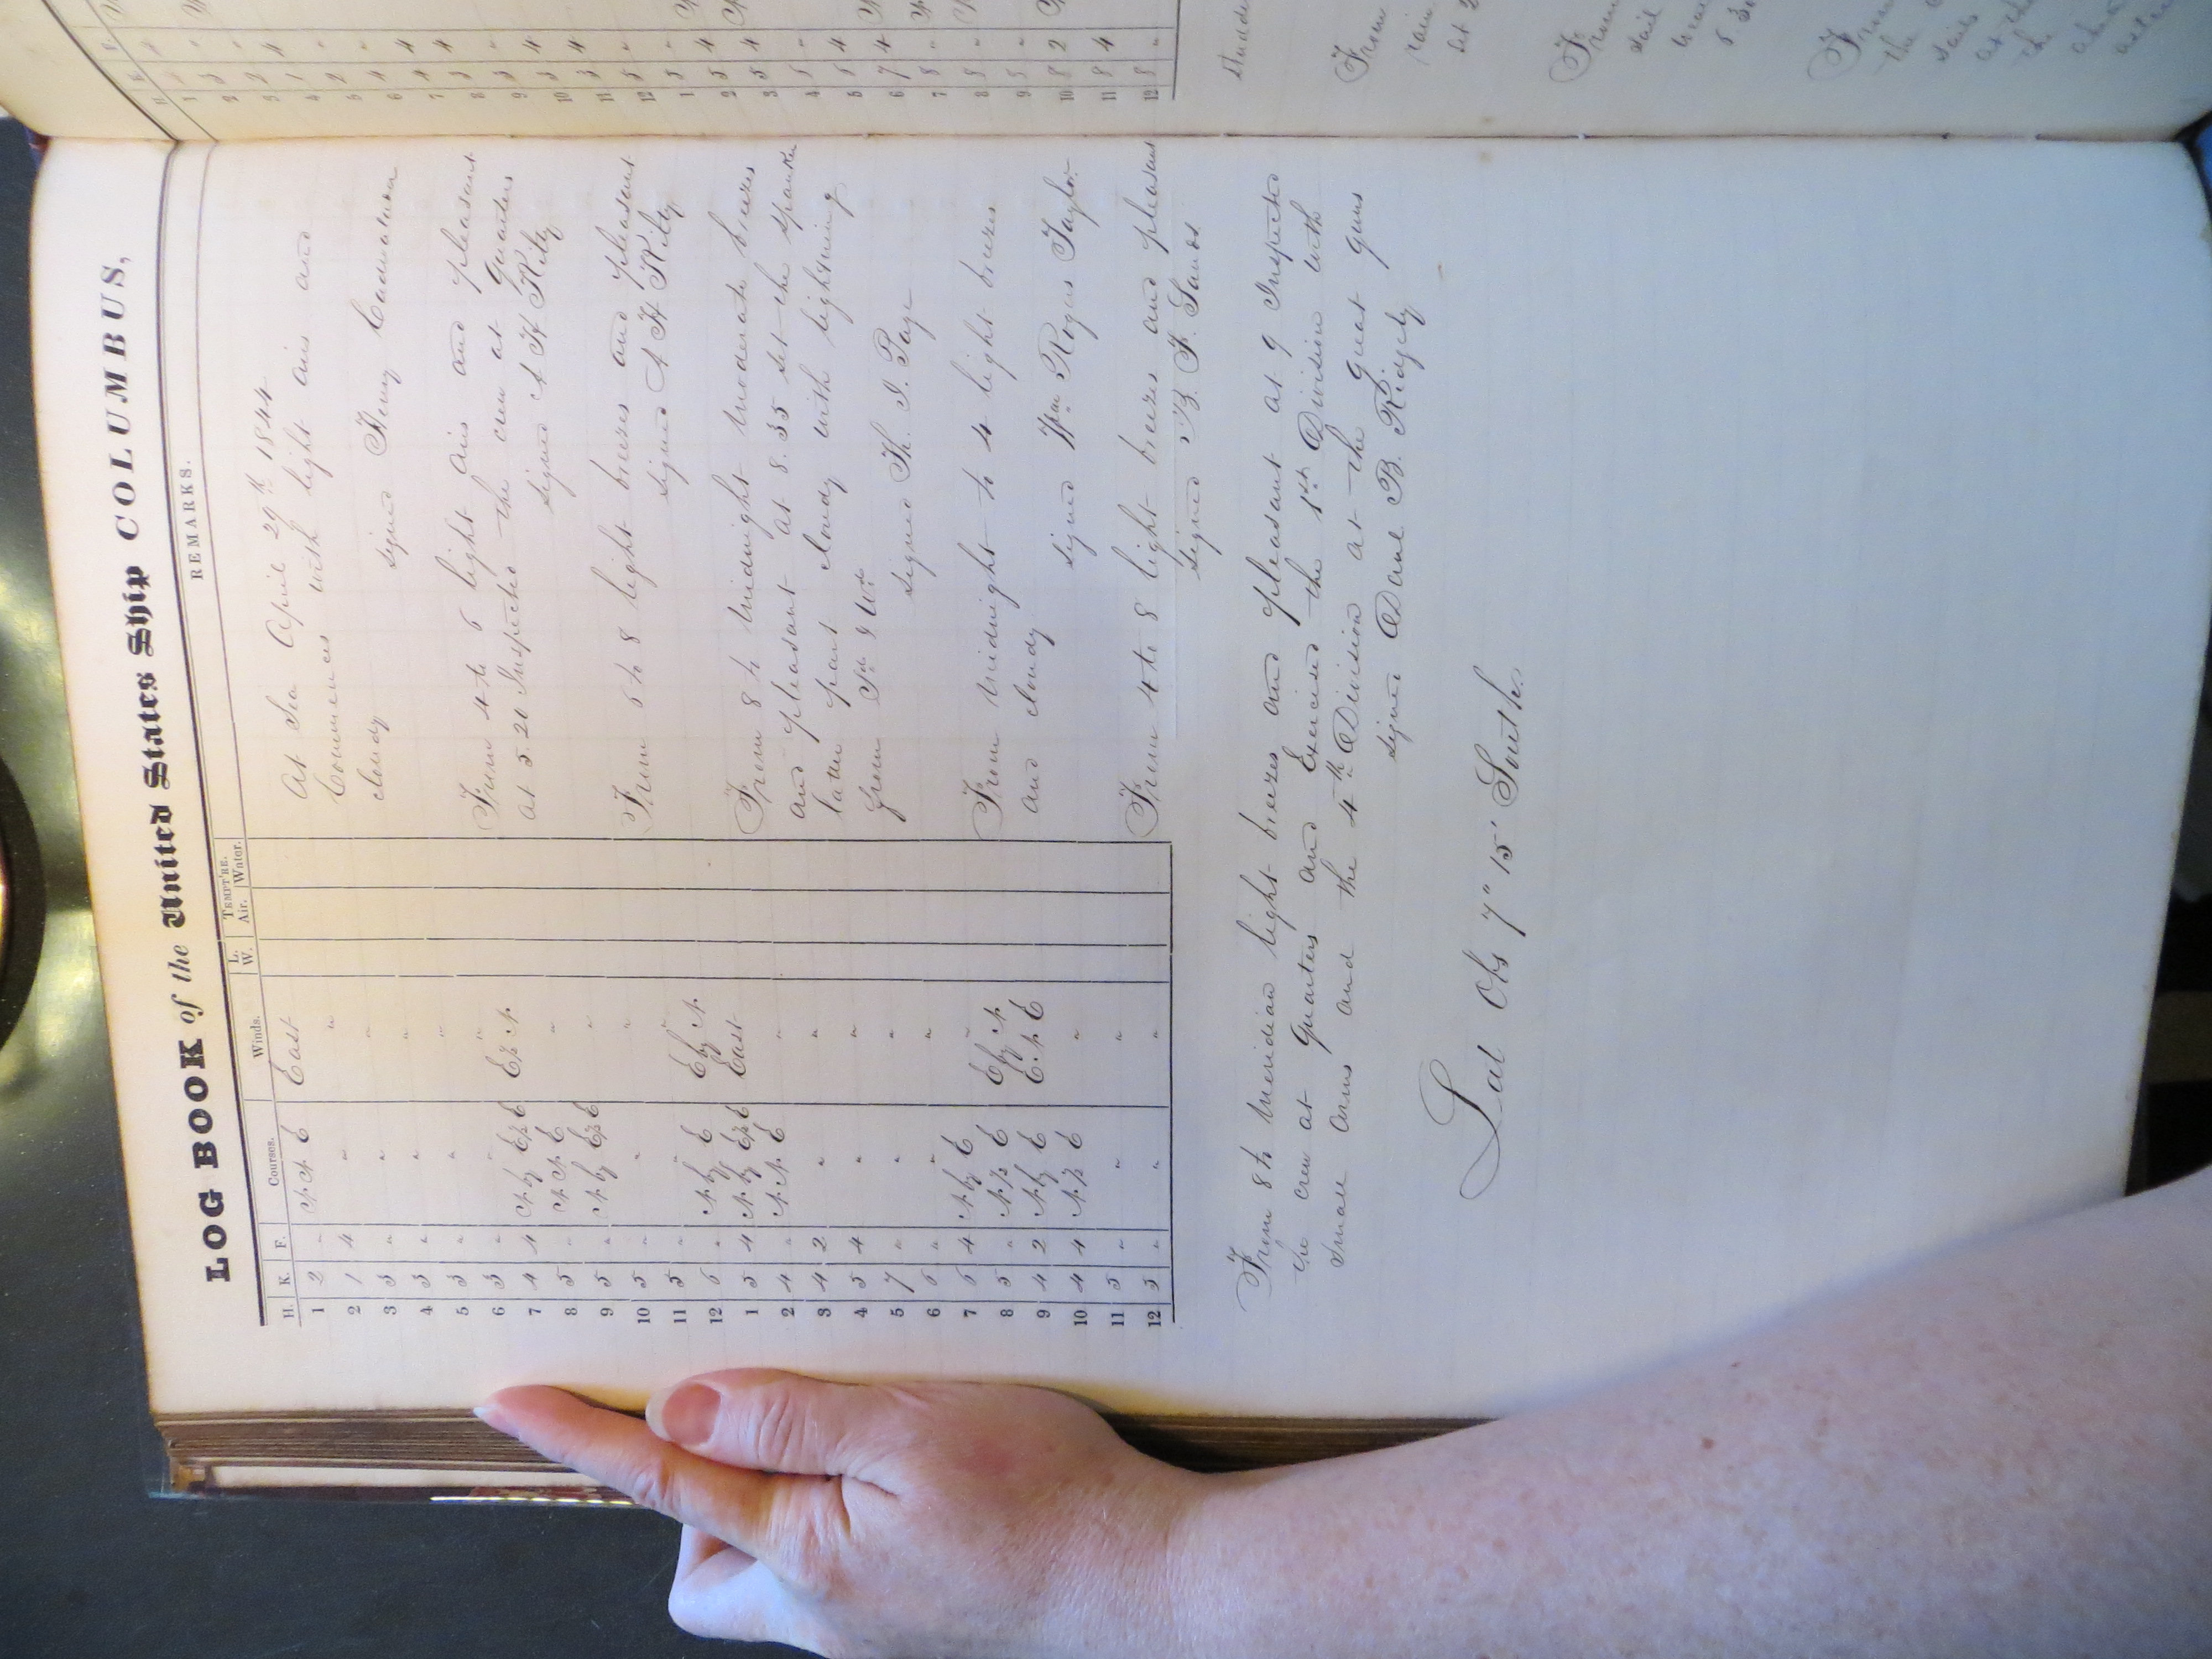 LOG BOOK of the United States Ship COLUMBUS,
H. K. F. Courses. Winds. L. W. TEMPT'RE. Air. Water. REMARKS.
At Sea April 29th 1844
Commences with light airs and
cloudy
signed Henry Cadwalader
From 4 to 6 light airs and pleasant
at 5.20 Inspected the crew at quarters
signed A H Kilty
From 6 to 8 light breezes and pleasant
signed A H Kilty
From 8 to Midnight Moderate breezes
and pleasant at 8.35 set the spanker
latter part cloudy with lightning
from
signed Th. J. Page
From Midnight to 4 light breezes
and cloudy
signed Wm Rogers Taylor
From 4 to 8 light breezes and pleasant
signed B. F. Sands
1 2 " N N E East
2 1 4 " "
3 3 " " "
4 3 " " "
5 3 " " "
6 3 " " "
7 4 4 N by E½E E½N
8 5 " N N E "
9 5 " N by E½E "
10 5 " " "
11 5 " " "
12 6 " N by E E by N
1 5 4 N by E½E East
2 4 " N N E "
3 4 2 " "
4 5 4 " "
5 7 " " "
6 6 " " "
7 6 4 N by E "
8 5 " N½E E by N
9 4 2 N by E E N E
10 4 4 N½E "
11 5 " " "
12 5 " " "
From 8 to Meridian light breezes and pleasant at 9 Inspected
the crew at quarters and Exercised the 1st Division with
small arms and the 4th Division at the great guns
signed Danl B. Ridgely
Lat Obs 7° 15' South.